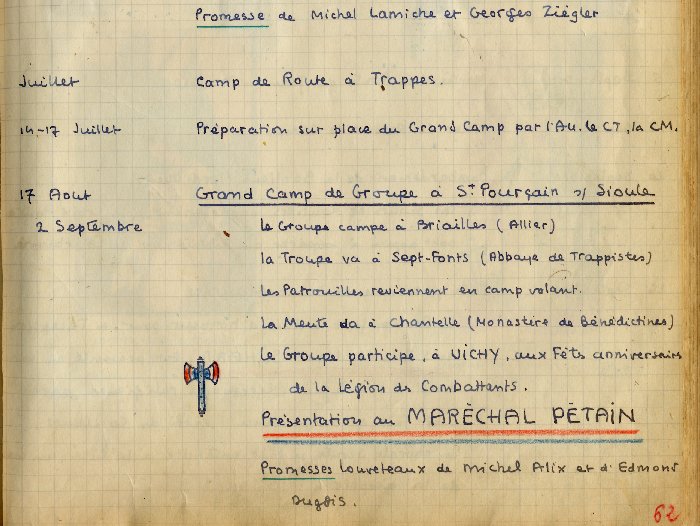 Promesse de Michel Lamiche et Georges Ziégler
Juillet Camp de Route à Trappes.
14-17 Juillet Préparation sur place du Grand Camp par l'Au. le CT, la CM.
17 Aout Grand Camp de Groupe à St Pourçain s/ Sioule
2 Septembre le Groupe campe à Briailles (Allier)
la Troupe va à Sept-Fonts (Abbaye de Trappistes)
Les Patrouilles reviennent en camp volant.
La Meute va à Chantelle (Monastère de Bénédictines)
Le Groupe participe, à VICHY, aux Fêts anniversaire
de la Légion des Combattants.
Présentation au MARÉCHAL PÉTAIN
Promesses Louveteaux de Michel Alix et d'Edmond
62